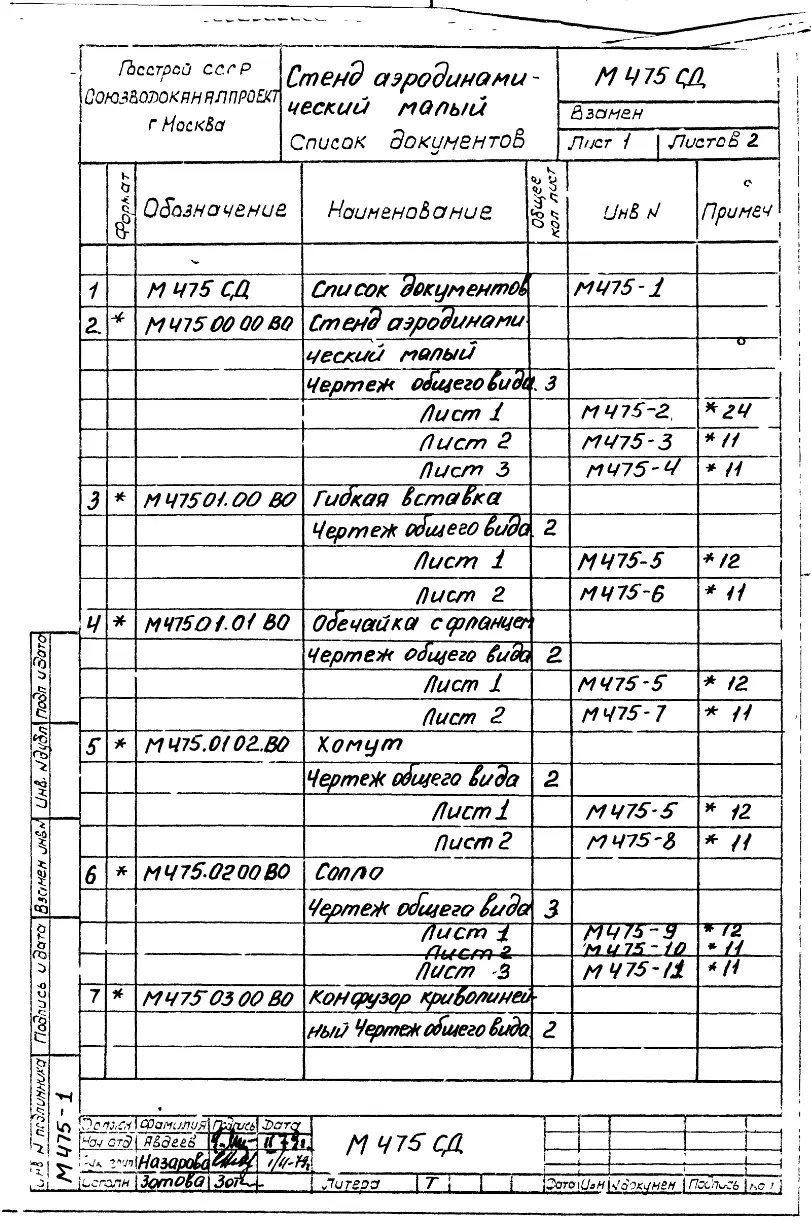 Госстрой СССР
СОЮЗВОДОКАНАЛПРОЕКТ
г Москва
Стенд аэродинами-
ческий малый
Список документов
М 475 СД
Взамен
Лист 1 Листов 2
Формат Обозначение Наименование Общее кол лист Инв N Примеч
1 М 475 СД Список документов М475-1
2 * М475 00 00 ВО Стенд аэродинами
ческий малый
Чертеж общего вида. 3
Лист 1 М475-2 *24
Лист 2 М475-3 *11
Лист 3 М475-4 *11
3 * М47501.00 ВО Гибкая вставка
Чертеж общего вида. 2
Лист 1 М475-5 *12
Лист 2 М475-6 *11
4 * М47501.01 ВО Обечайка с фланцем
Чертеж общего вида 2
Лист 1 М475-5 *12
Лист 2 М475-7 *11
5 * М475.0102.ВО Хомут
Чертеж общего вида 2
Лист 1 М475-5 *12
Лист 2 М475-8 *11
6 * М475.0200ВО Сопло
Чертеж общего вида 3
Лист 1 М475-9 *12
Лист 2 М475-10 *11
Лист 3 М475-11 *11
7 * М475 03 00 ВО Конфузор криволиней-
ный Чертеж общего вида. 2
Инв N подлинника Подпись и дата Взамен инв N Инв. N дубл Подп и дата
М475-1
Должн Фамилия Подпись Дата
Нач отд Авдеев
Назарова
Исполн Зотова
М 475 СД
Литера Т
Дата N докумен Подпись